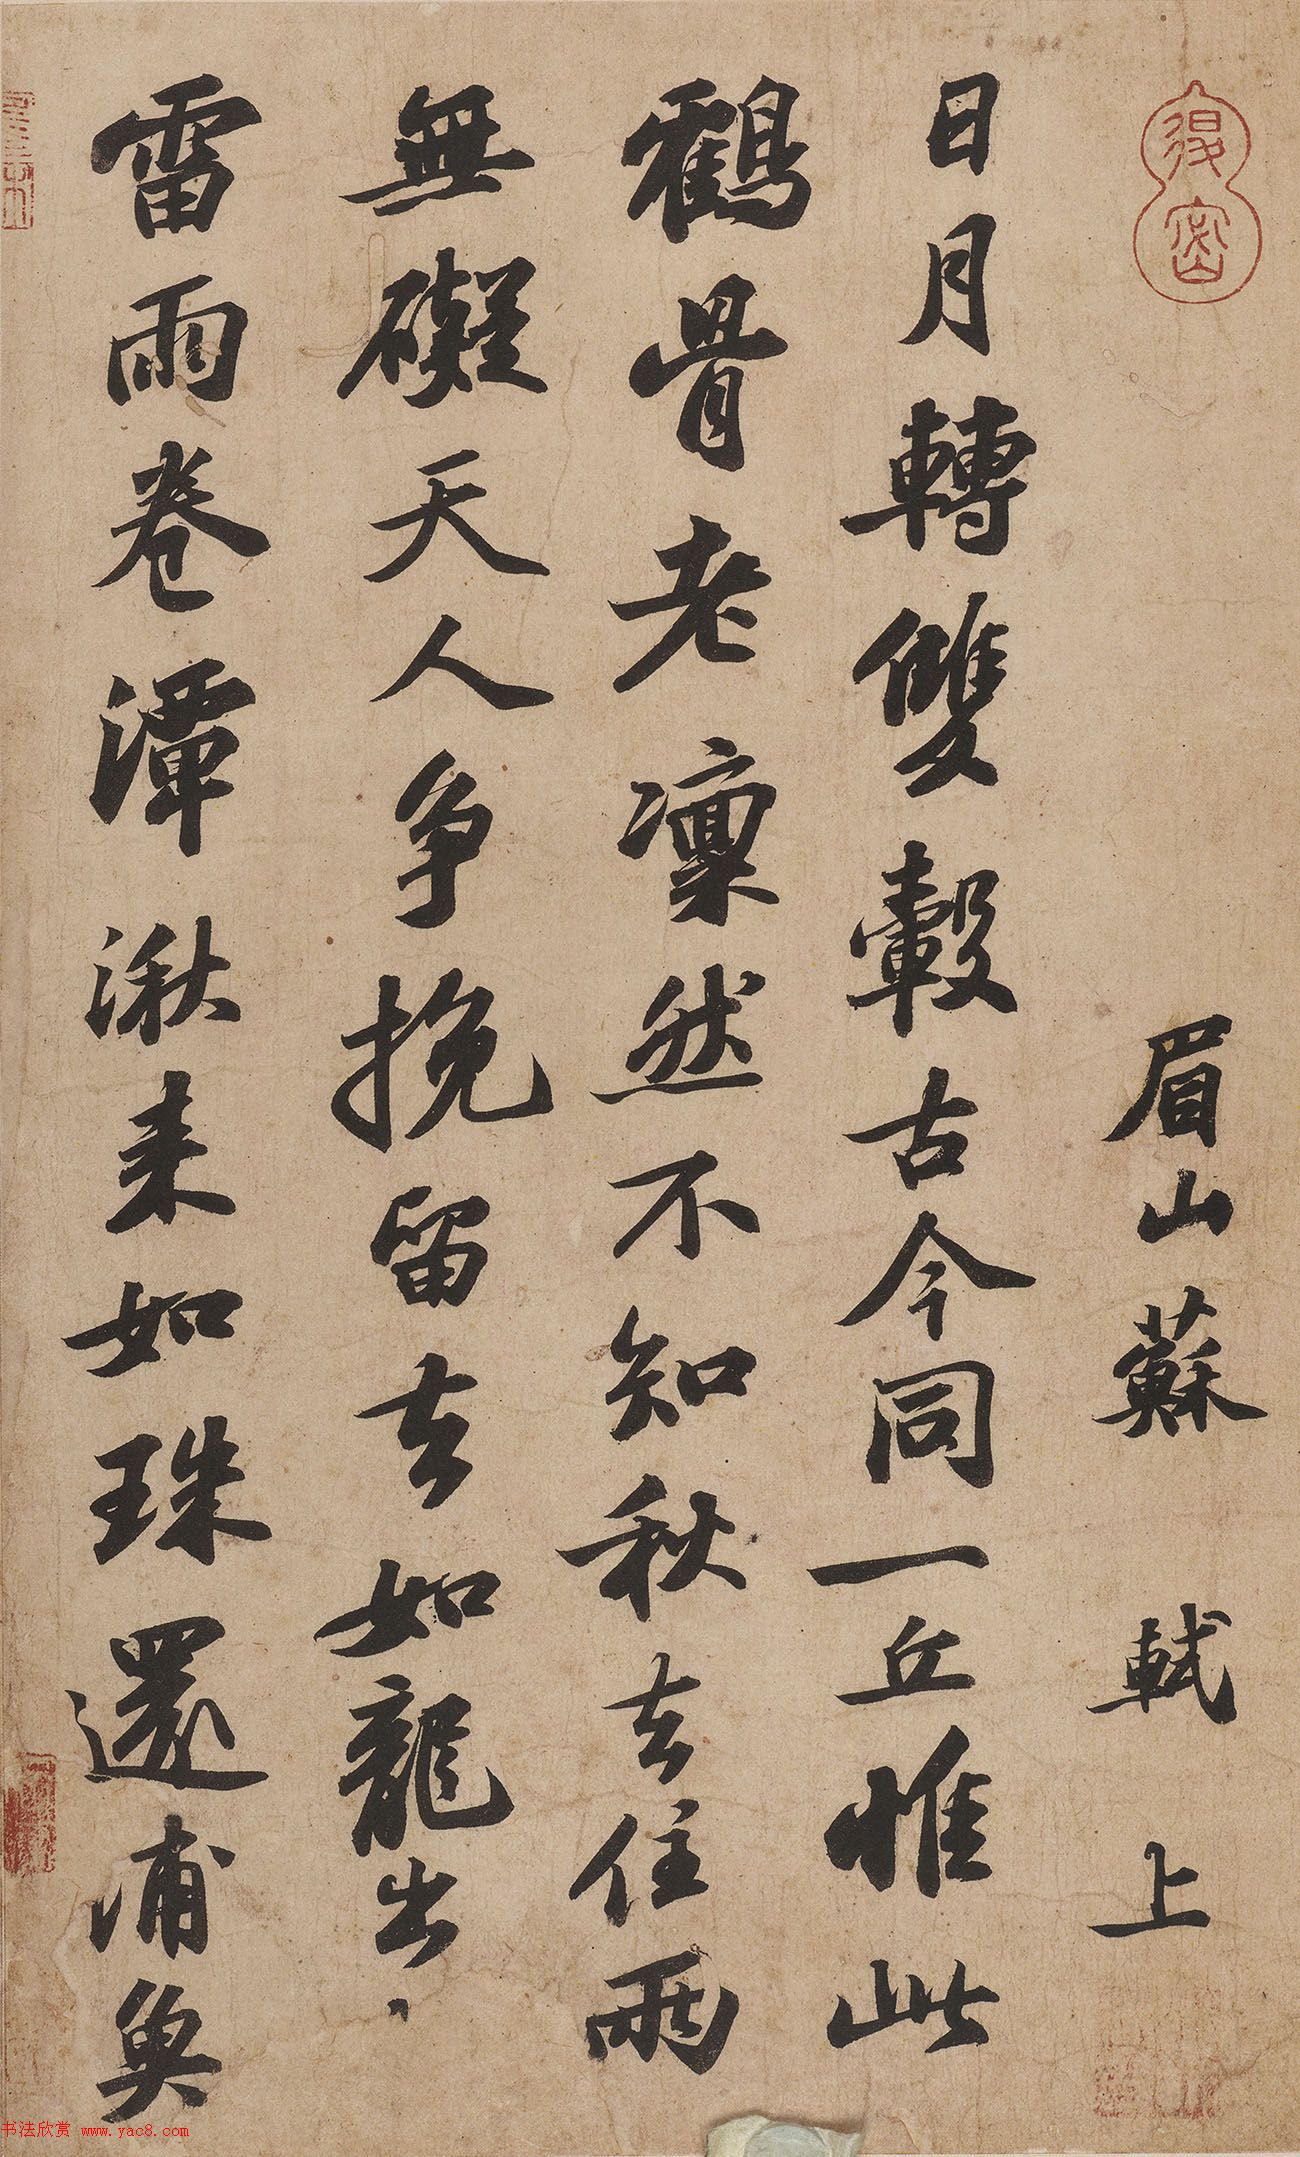 眉山蘇軾上
日月轉雙轂古今同一丘惟此
鶴骨老凜然不知秋去住兩
無礙天人争挽留去如龍出
雷雨卷潭湫来如珠還浦魚
书法欣赏 www.yac8.com